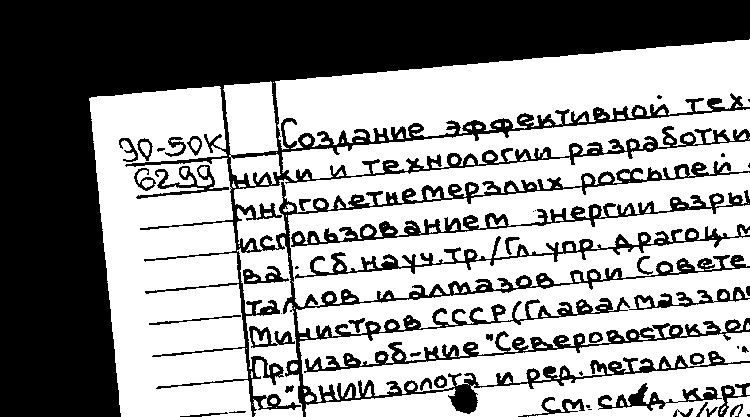 90-50К
6299
Создание эффективной тех-
ники и технологии разработки
многолетнемерзлых россыпей
использованием энергии взры
ва: Сб. науч. тр./Гл. упр. драгоц. м
таллов и алмазов при Совете
Министров СССР (Главалмаззоло
Произв. об-ние "Северовостокзол
то", ВНИИ золота и ред. металлов "
См. след. карт